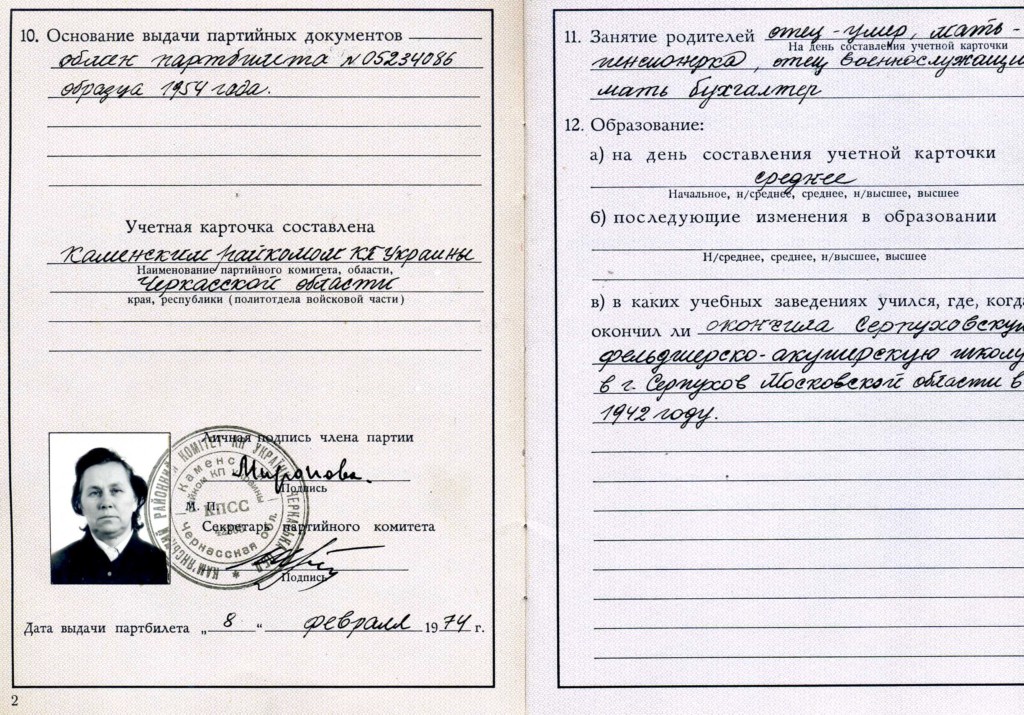 10. Основание выдачи партийных документов
обмен партбилета №05234086
образца 1954 года.
Учетная карточка составлена
Каменским райкомом КП Украины
Наименование партийного комитета, области,
Черкасской области
края, республики (политотдела войсковой части)
Личная подпись члена партии
Миронова.
Подпись
М. П.
Секретарь партийного комитета
Подпись
КАМ'ЯНСЬКИЙ РАЙОННИЙ КОМІТЕТ КП УКРАЇНИ ЧЕРКАСЬКА
Каменс
райком КП Украины
КПСС
Черкасская обл.
Дата выдачи партбилета „8“ февраля 1974 г.
2
11. Занятие родителей отец - умер, мать -
На день составления учетной карточки
пенсионерка, отец военнослужащи
мать бухгалтер
12. Образование:
а) на день составления учетной карточки
среднее
Начальное, н/среднее, среднее, н/высшее, высшее
б) последующие изменения в образовании
Н/среднее, среднее, н/высшее, высшее
в) в каких учебных заведениях учился, где, когда
окончил ли окончила Серпуховскую
фельдшерско-акушерскую школу
в г. Серпухов Московской области в
1942 году.